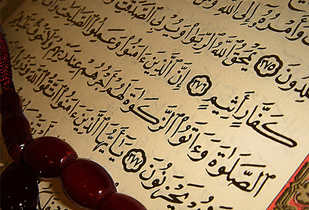 وَأَمْرُهُ إِلَى اللَّهِ
لِدُونَ ٢٧٥ يَمْحَقُ اللَّهُ الرِّبَوٰا وَيُرْبِى الصَّدَقَٰتِ
كَفَّارٍ أَثِيمٍ ٢٧٦ إِنَّ الَّذِينَ ءَامَنُوا وَعَمِلُوا الصَّٰلِحَٰتِ
الصَّلَوٰةَ وَءَاتَوُا الزَّكَوٰةَ لَهُمْ أَجْرُهُمْ عِندَ رَبِّهِمْ وَلَا خَوْفٌ
يَحْزَنُونَ ٢٧٧ يَٰٓأَيُّهَا الَّذِينَ ءَامَنُوا اتَّقُوا اللَّهَ